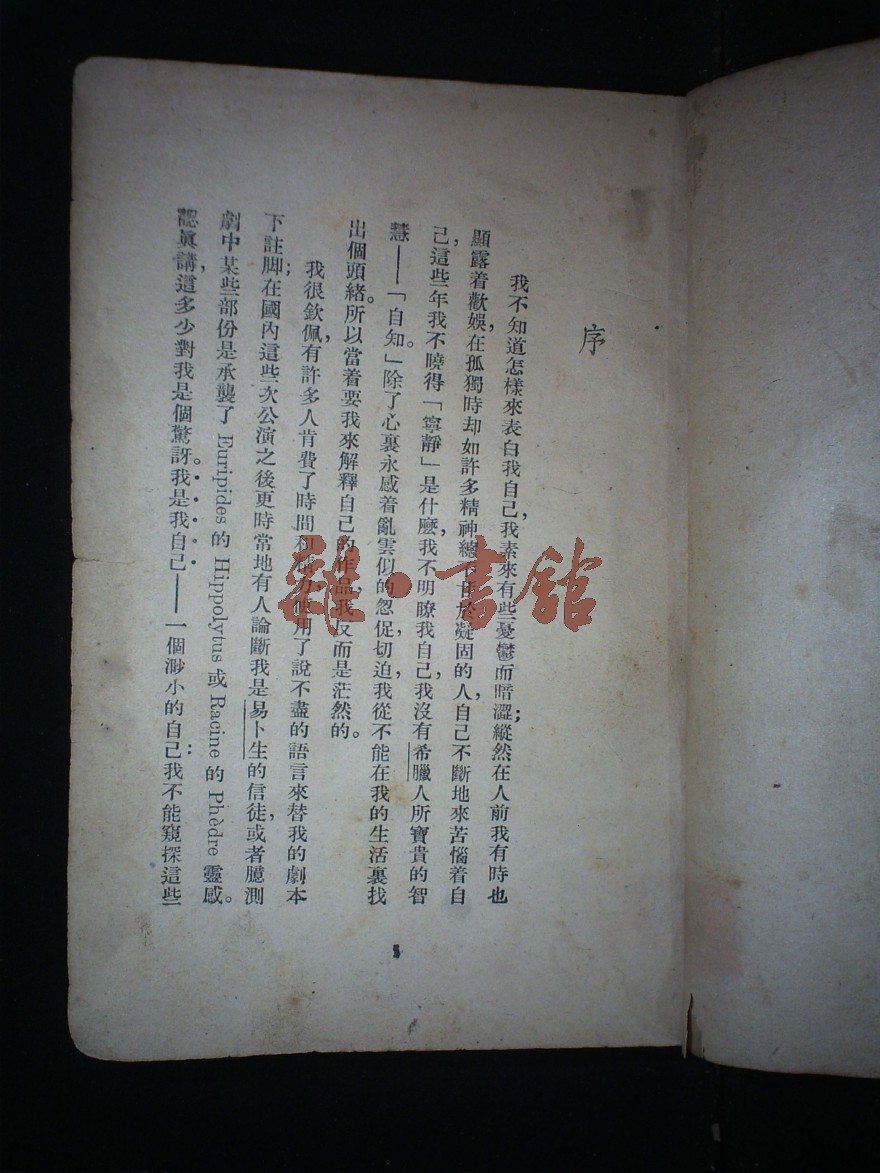 序
我不知道怎樣來表白我自己，我素來有些憂鬱而暗澀；縱然在人前我有時也
顯露着歡娛，在孤獨時却如許多精神總不甘於凝固的人，自己不斷地來苦惱着自
己，這些年我不曉得「寧靜」是什麼，我不明瞭我自己，我沒有希臘人所寶貴的智
慧——「自知」。除了心裏永感着亂雲似的忽促，切迫，我從不能在我的生活裏找
出個頭緒。所以當着要我來解釋自己的作品，我反而是茫然的。
我很欽佩，有許多人肯費了時間和精力，使用了說不盡的語言來替我的劇本
下註脚；在國內這些次公演之後更時常地有人論斷我是易卜生的信徒，或者臆測
劇中某些部份是承襲了 Euripides 的 Hippolytus 或 Racine 的 Phèdre 靈感。
認眞講，這多少對我是個驚訝。我是我自己——一個渺小的自己：我不能窺探這些
雜·書館